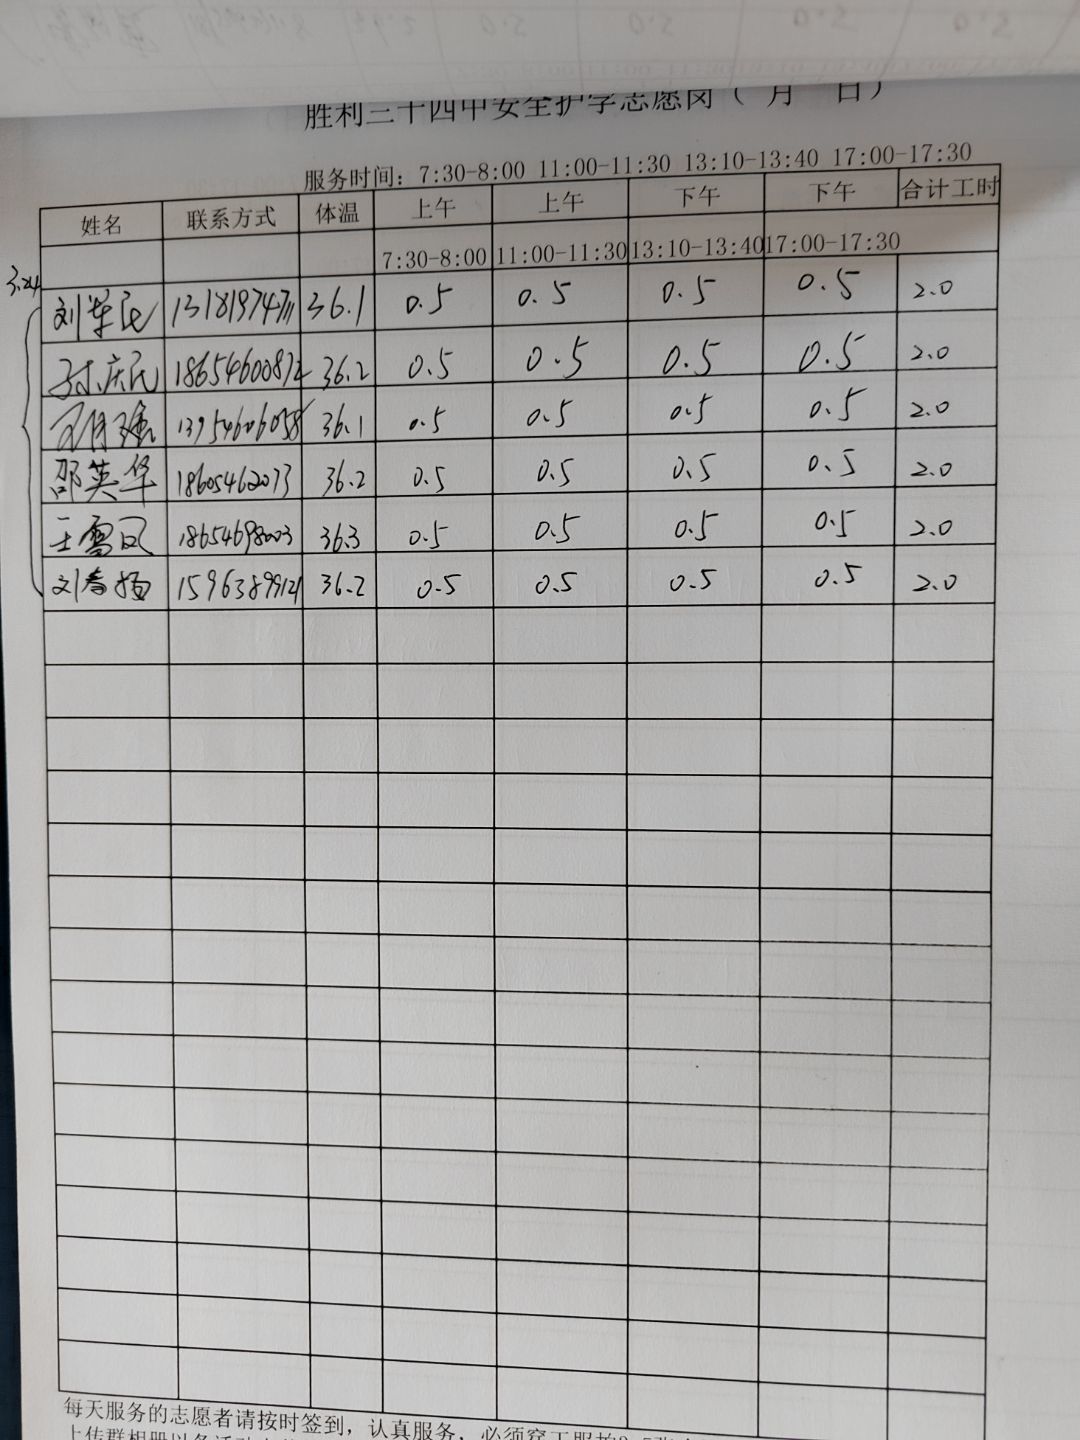 胜利三十四中安全护学志愿岗（ 月 日）
服务时间：7:30-8:00 11:00-11:30 13:10-13:40 17:00-17:30
姓名 联系方式 体温 上午 上午 下午 下午 合计工时
7:30-8:00 11:00-11:30 13:10-13:40 17:00-17:30
3.24
刘军民 13181974711 36.1 0.5 0.5 0.5 0.5 2.0
孙庆民 18654600872 36.2 0.5 0.5 0.5 0.5 2.0
13954606058 36.1 0.5 0.5 0.5 0.5 2.0
邵英华 18605462073 36.2 0.5 0.5 0.5 0.5 2.0
王雪凤 18654698003 36.3 0.5 0.5 0.5 0.5 2.0
刘春扬 15963899121 36.2 0.5 0.5 0.5 0.5 2.0
每天服务的志愿者请按时签到，认真服务，必须穿工服拍